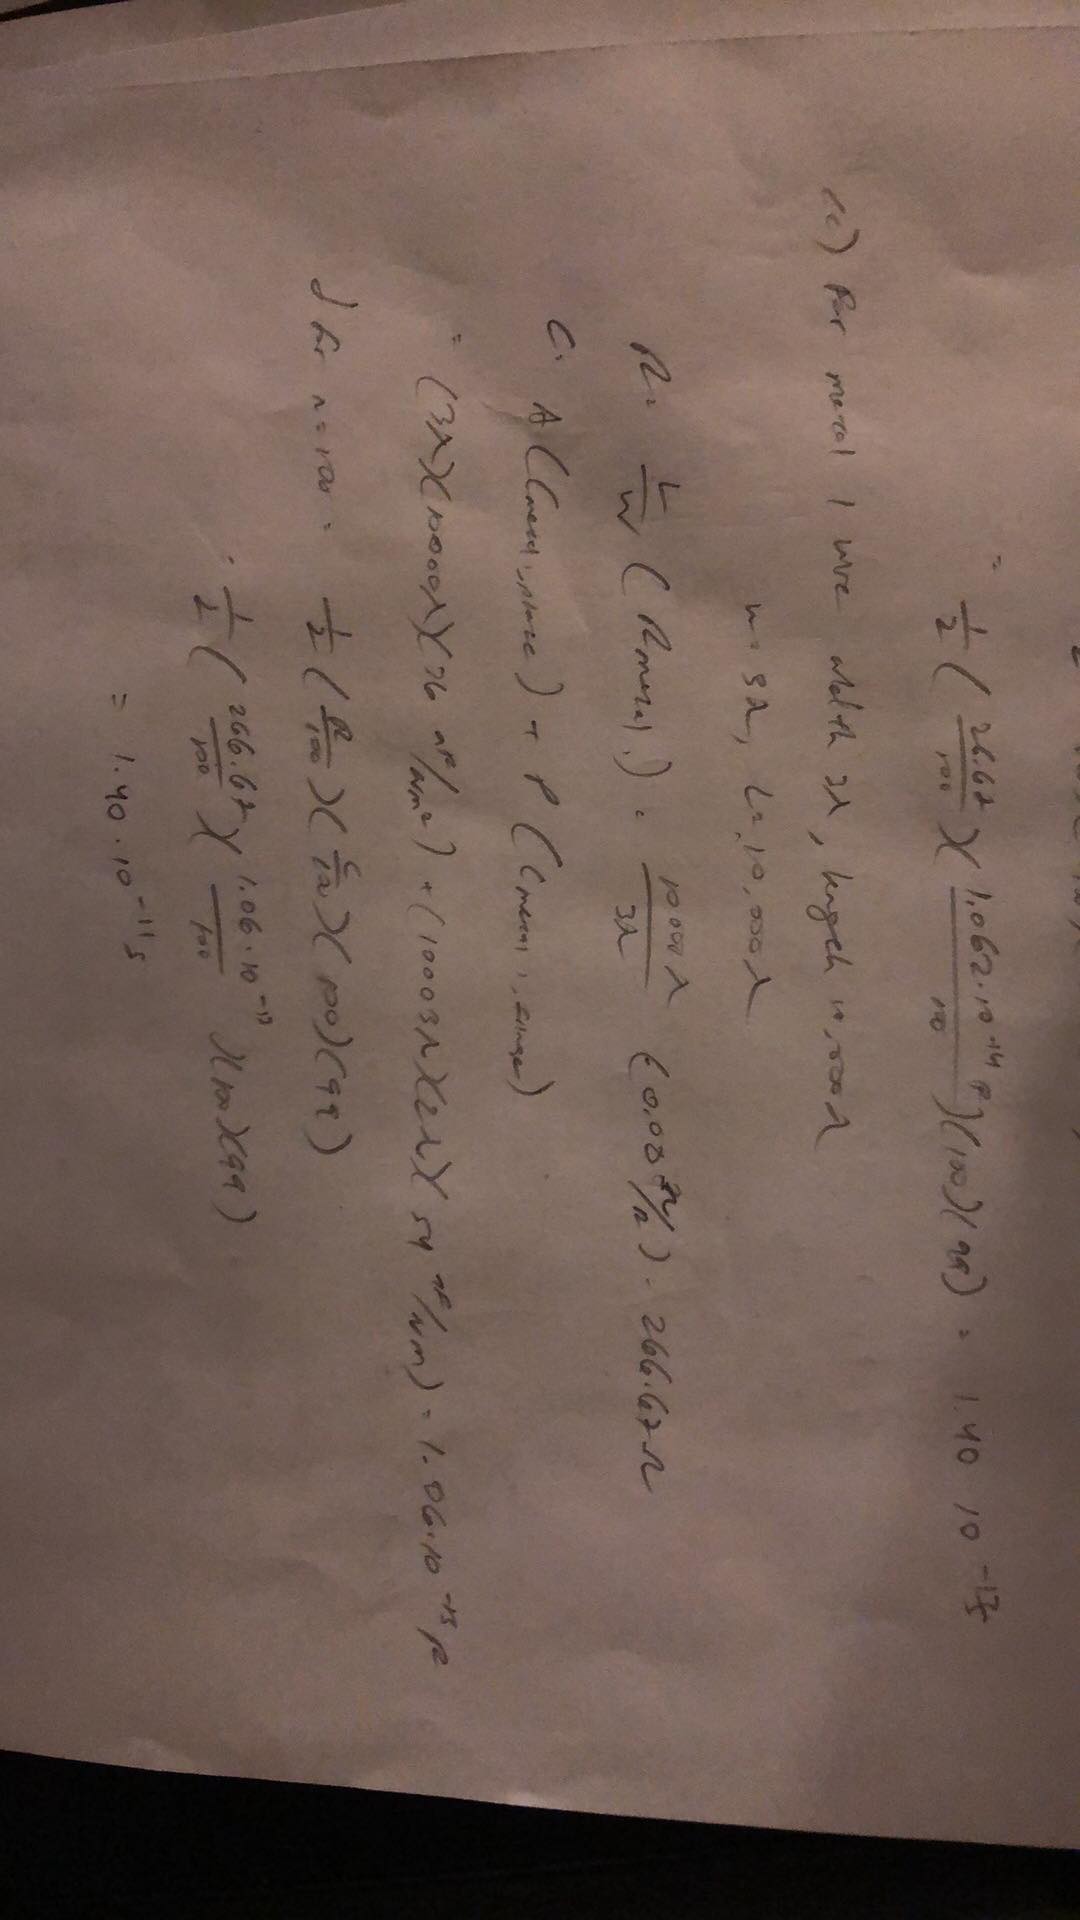 = 1/2 ( 26.67/100 )( 1.062·10^-14 F/100 )(100)(99) = 1.40 10^-13 s
(c) For metal 1 wire width 3λ, length 10,000λ
w = 3λ, L = 10,000λ
R = L/W ( Rmetal 1 ) = 10000λ/3λ (0.08 Ω/□) = 266.67 Ω
C = A (Cmetal 1, plate) + P (Cmetal 1, fringe)
= (3λ)(10000λ)(36 aF/um²) + (10003λ)(2λ)(54 aF/um) = 1.06·10^-13 F
d for n=100 = 1/2 ( R/100 )( C/100 )(100)(99)
= 1/2 ( 266.67/100 )( 1.06·10^-13/100 )(100)(99)
= 1.40·10^-11 s